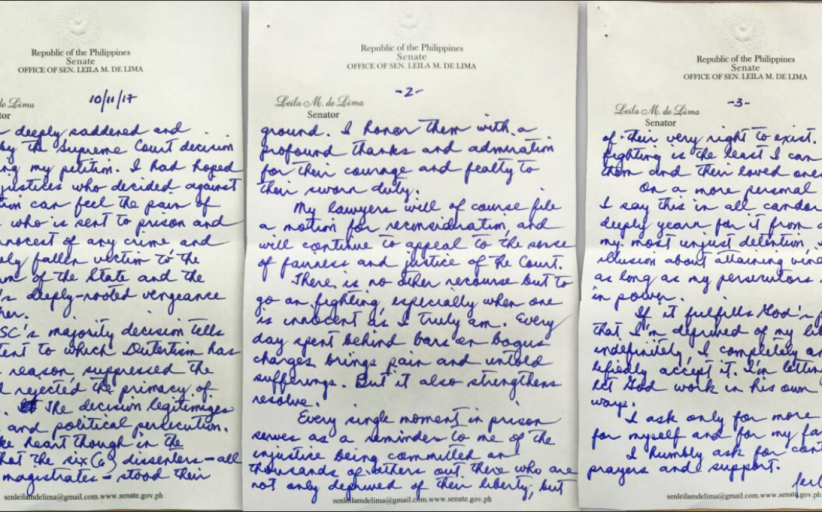 Republic of the Philippines
Senate
OFFICE OF SEN. LEILA M. DE LIMA
de Lima
tor
10/11/17
deeply saddened and
by the Supreme Court decision
ng my petition. I had hoped
justices who decided against
tion can feel the pain of
who is sent to prison and
nnocent of any crime and
ely fallen victim to the
rm of the State and the
's deeply-rooted vengeance
her.
SC's majority decision tells
tent to which Dutertism has
reason suppressed the
d rejected the primacy of
. The decision legitimizes
and political persecution.
ke heart though in the
hat the six (6) dissenters - all
magistrates - stood their
senleilamdelima@gmail.com www.senate.gov.ph
Republic of the Philippines
Senate
OFFICE OF SEN. LEILA M. DE LIMA
-2-
Leila M. de Lima
Senator
ground. I honor them with a
profound thanks and admiration
for their courage and fealty to
their sworn duty.
My lawyers will of course file
a motion for reconsideration, and
will continue to appeal to the sense
of fairness and justice of the Court.
There is no other recourse but to
go on fighting, especially when one
is innocent as I truly am. Every
day spent behind bars on bogus
charges brings pain and untold
sufferings. But it also strengthens
resolve.
Every single moment in prison
serves as a reminder to me of the
injustice being committed on
thousands of others out there who are
not only deprived of their liberty, but
senleilamdelima@gmail.com www.senate.gov.ph
Republic of the Philippines
Senate
OFFICE OF SEN. LEILA M. DE LIMA
-3-
Leila M. de Lima
Senator
of their very right to exist.
fighting is the least I can
them and their loved one
On a more personal
I say this in all candor
deeply yearn for it from
my most unjust detention,
illusion about attaining vind
as long as my persecutors
in power.
If it fulfills God's p
that I'm deprived of my lib
indefinitely, I completely an
accept it. I'm letting
let God work in his own
ways.
I ask only for more
for myself and for my fa
I humbly ask for cont
prayers and support.
senleilamdelima@gmail.com www.senate.gov.ph